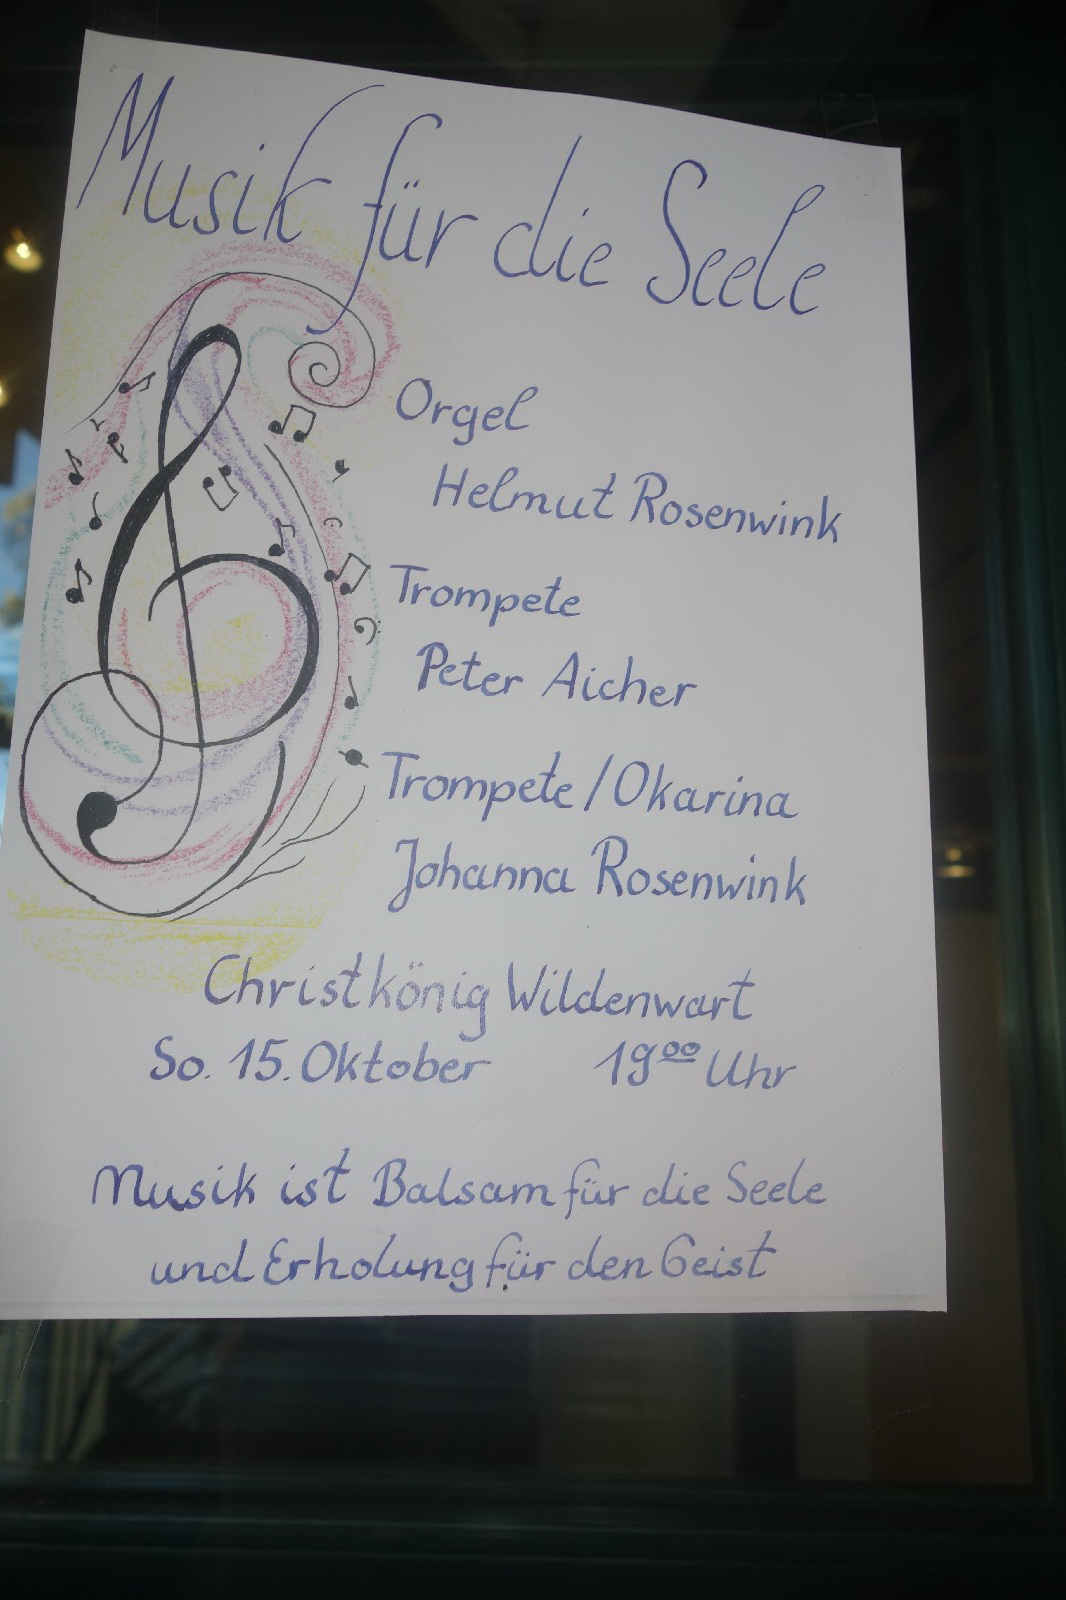 Musik für die Seele
Orgel
Helmut Rosenwink
Trompete
Peter Aicher
Trompete/Okarina
Johanna Rosenwink
Christkönig Wildenwart
So. 15. Oktober 19⁰⁰ Uhr
Musik ist Balsam für die Seele
und Erholung für den Geist